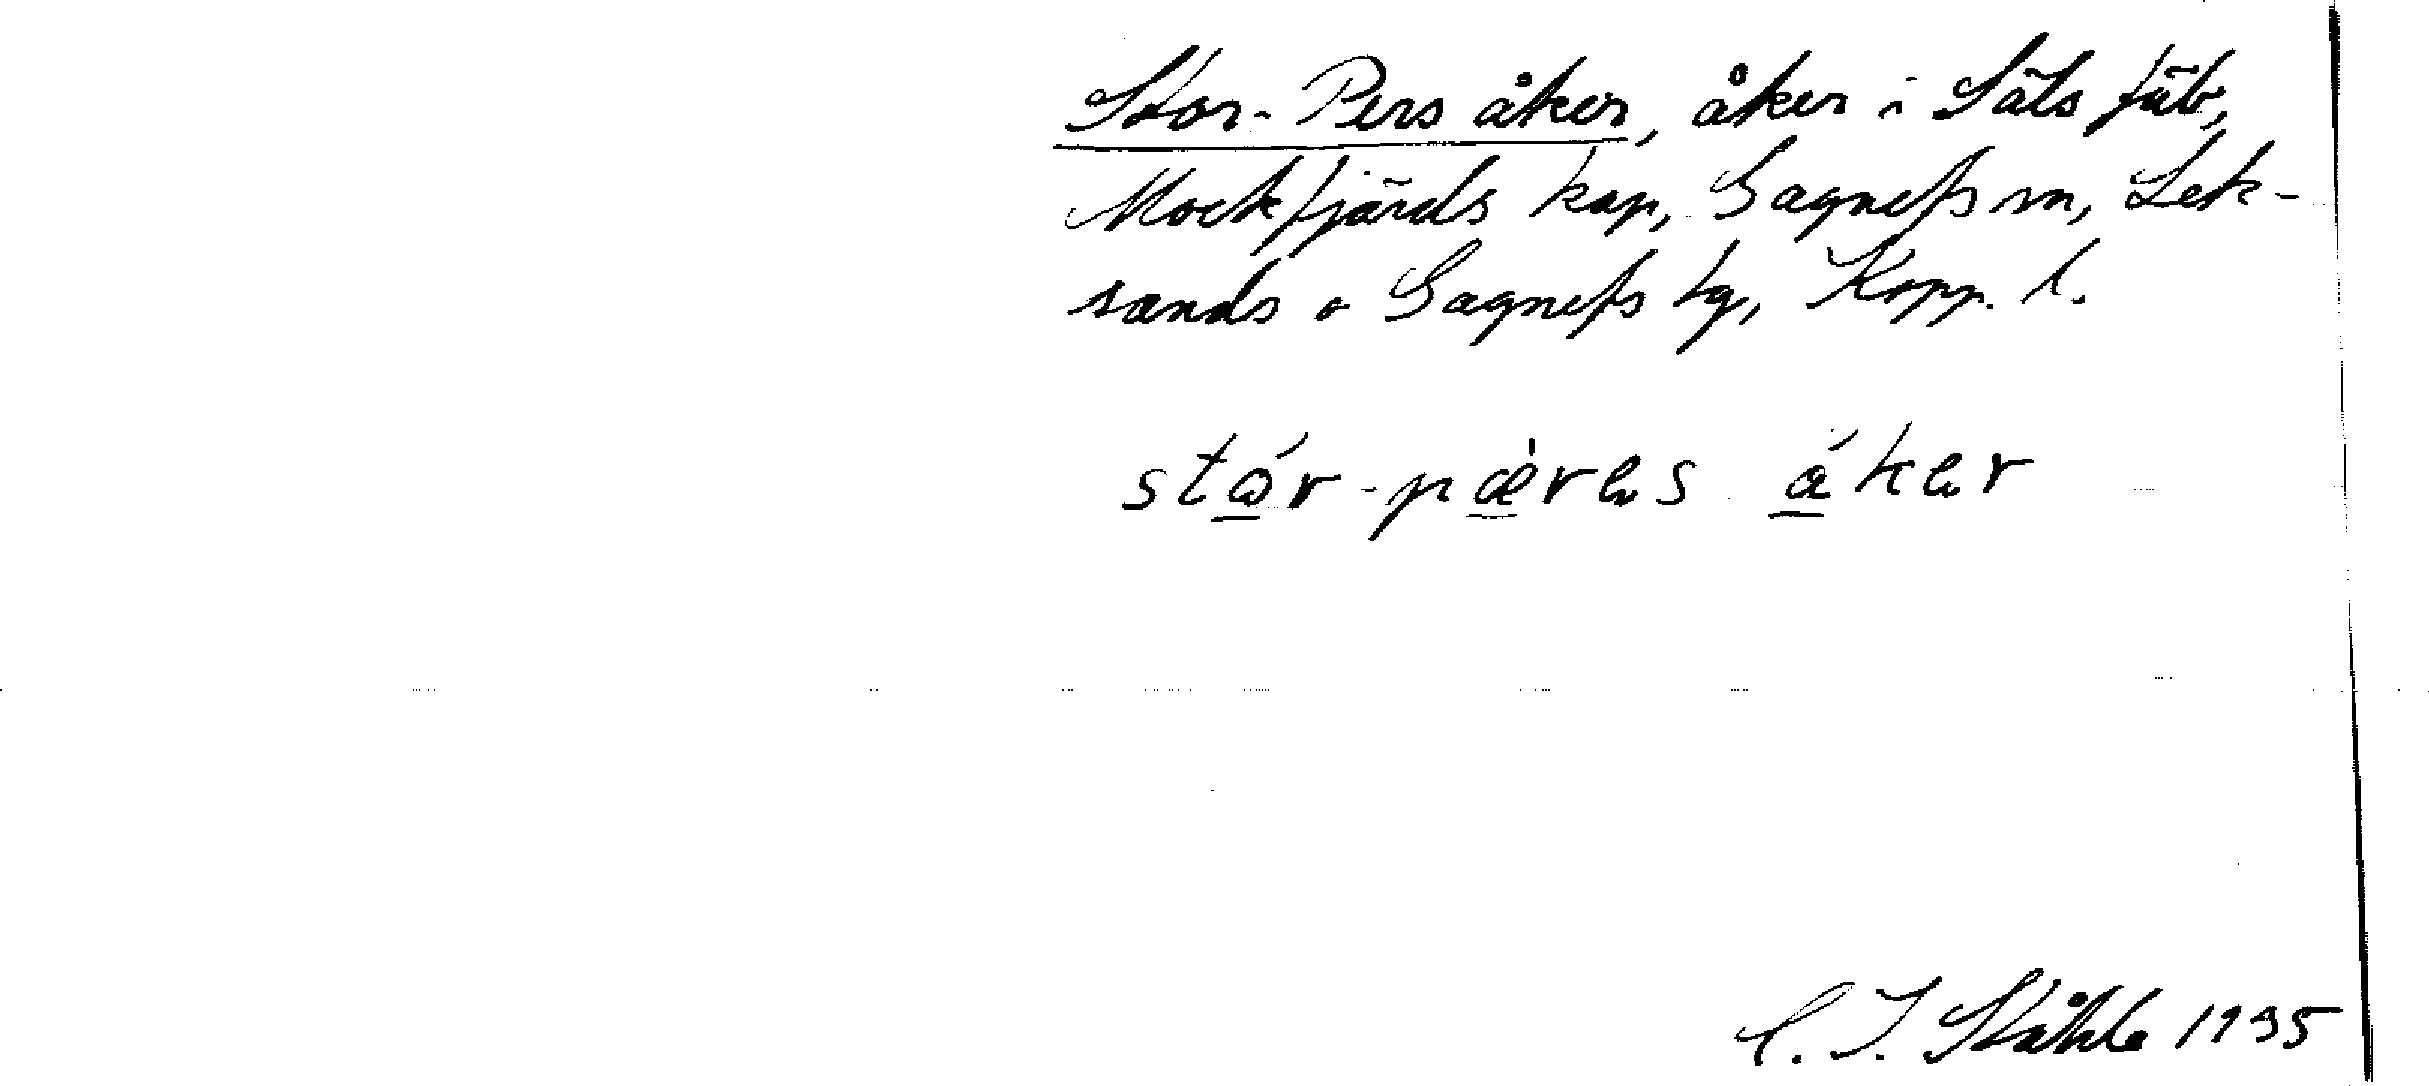 Stor-Pers åker, åker i Säls fäb,
Mockfjärds kap, Gagnefs sn, Lek-
sands o Gagnefs tg, Kopp. l.
stór-pæ̀res áker
C. I. Ståhle 1935